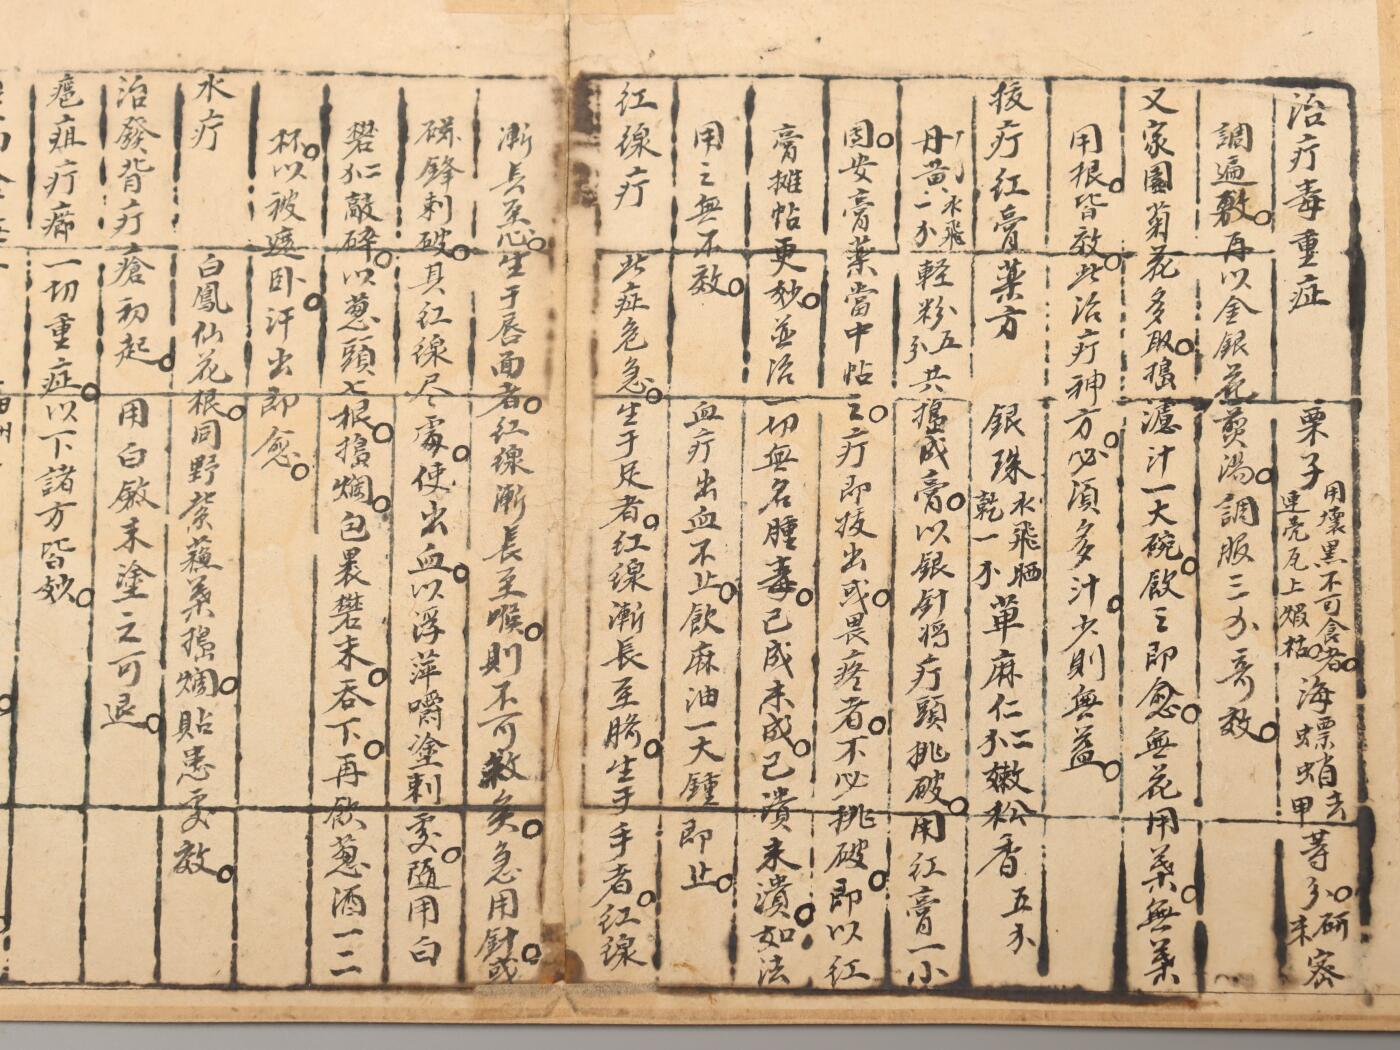 治疔毒重症 栗子用壞黑不可食者連壳瓦上煆枯 海螵蛸去甲 等分研末 密
調遍敷再以金銀花煎湯調服三分奇效
又家園菊花多取搗濾汁一大碗飲之即愈無花用葉無葉
用根皆效此治疔神方必須多汁少則無益
拔疔紅膏藥方 銀珠水飛晒乾一分 萆麻仁二分 嫩松香五分
丹黃水飛二分 輕粉五分 共搗成膏以銀針將疔頭挑破用紅膏一小
圓安膏藥當中帖之疔即拔出或畏疼者不必挑破即以紅
膏攤帖更妙並治一切無名腫毒已成未成已潰未潰如法
用之無不效 血疔出血不止飲麻油一大鍾即止
紅線疔 此症危急生于足者紅線漸長至臍生于手者紅線
漸長至心生于唇面者紅線漸長至喉則不可救矣急用針或
磁鋒刺破其紅線尽處使出血以浮萍嚼塗刺處隨用白
礬仁敲碎以葱頭七根搗爛包裹礬末吞下再飲葱酒一二
杯以被遮卧汗出即愈
水疔 白鳳仙花根同野紫蘇葉搗爛貼患處效
治發背疔瘡初起 用白蘞末塗之可退
疤疽疔癤一切重症以下諸方皆妙